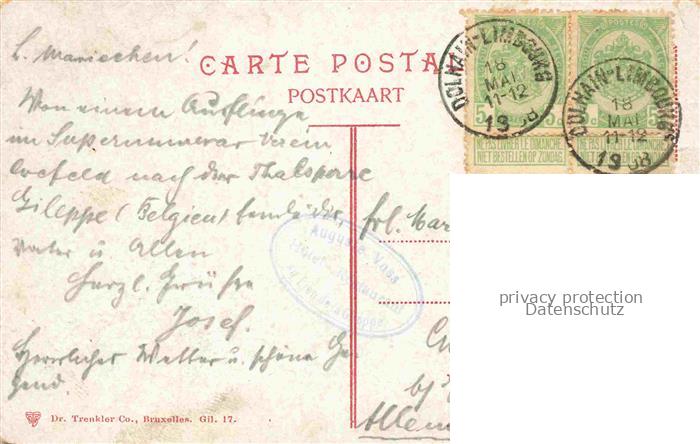 L. Mariechen!
Von einem Ausflüge
im Supernumerar Verein
Crefeld nach der Thalsperre
Gileppe (Belgien) sende dir,
Vater u Allen
Herzl. Grüße
Josef.
Herrliches Wetter u. schöne Ge-
gend.
CARTE POSTA
POSTKAART
DOLHAIN-LIMBOURG
18
MAI
11-12
19 08
DOLHAIN-LIMBOURG
18
MAI
11-12
19 08
NE PAS LIVRER LE DIMANCHE
NIET BESTELLEN OP ZONDAG
NE PAS LIVRER LE DIMANCHE
NIET BESTELLEN OP ZONDAG
Frl. Mar
Auguste Voss
Hôtel-Restaurant
Gileppe
Allem
privacy protection
Datenschutz
Dr. Trenkler Co., Bruxelles. Gil. 17.